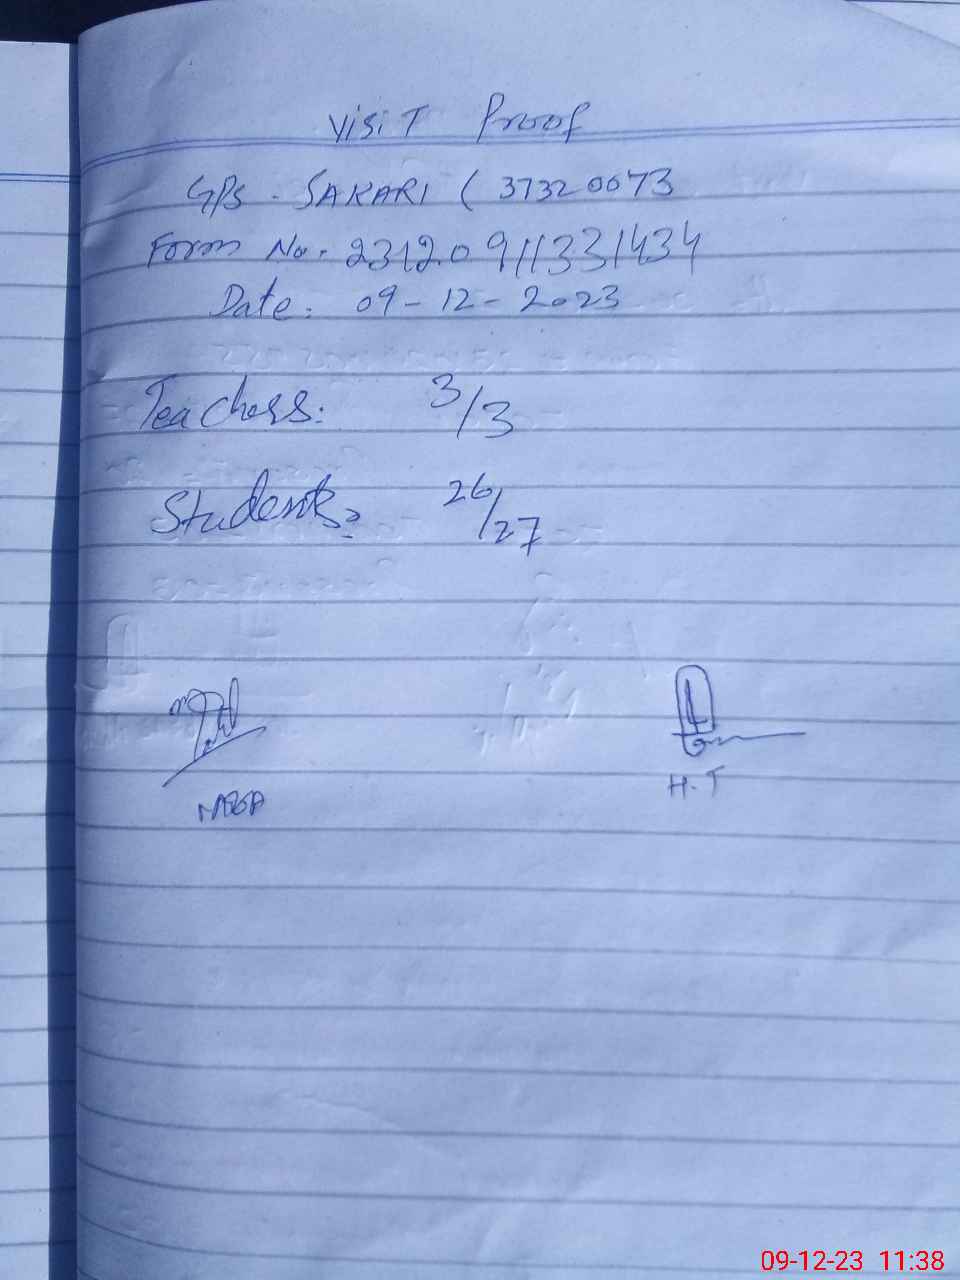 Visit Proof
GPS - SAKARI ( 37320073
Form No. 23120911331434
Date: 09-12-2023
Teachers: 3/3
Students: 26/27
H.T
09-12-23 11:38